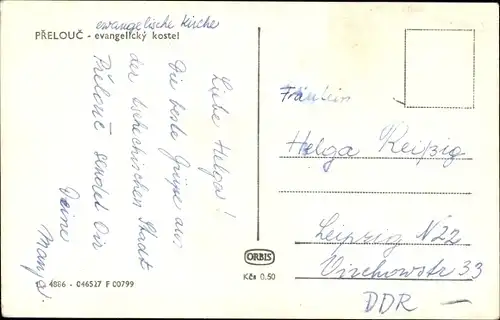 evangelische Kirche
PŘELOUČ - evangelický kostel
Liebe Helga!
Die beste Grüße aus
der tschechischen Stadt
Přelouč sendet Dir
Deine
Manja.
4886 - 046527 F 00799
ORBIS
Kčs 0.50
Fräulein
Helga Reipzig
Leipzig N22
Virchowstr 33
DDR -